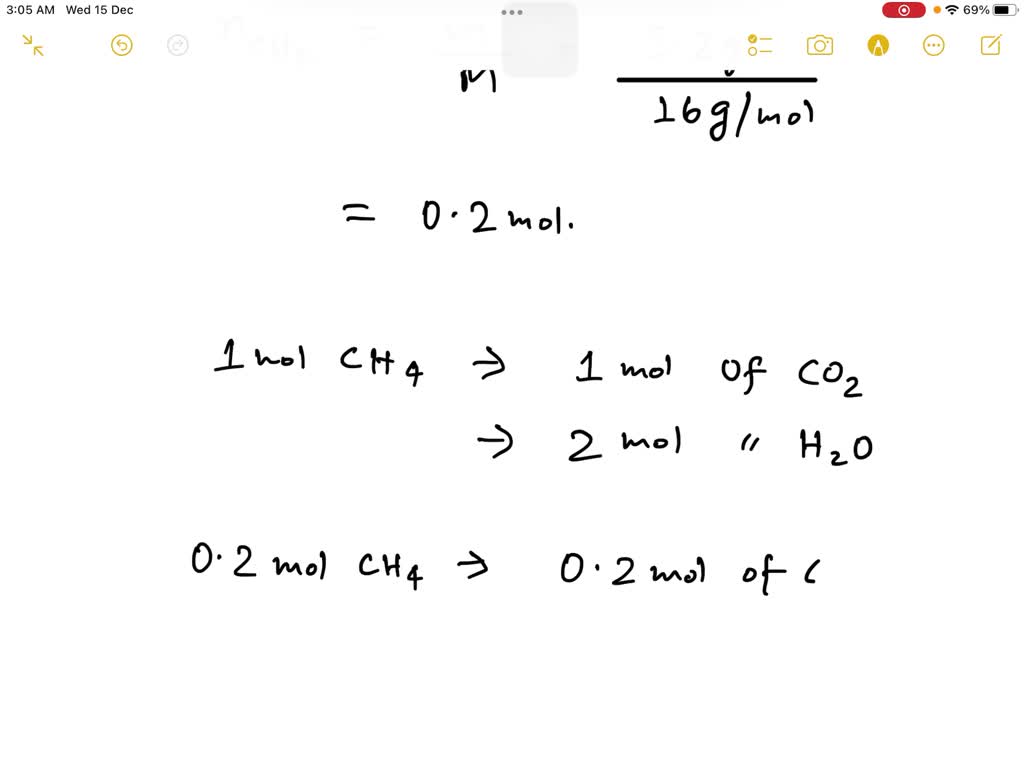 3:05 AM Wed 15 Dec
69%
M
16g/mol
= 0.2 mol.
1 mol CH4 → 1 mol of CO2
→ 2 mol " H2O
0.2 mol CH4 → 0.2 mol of C